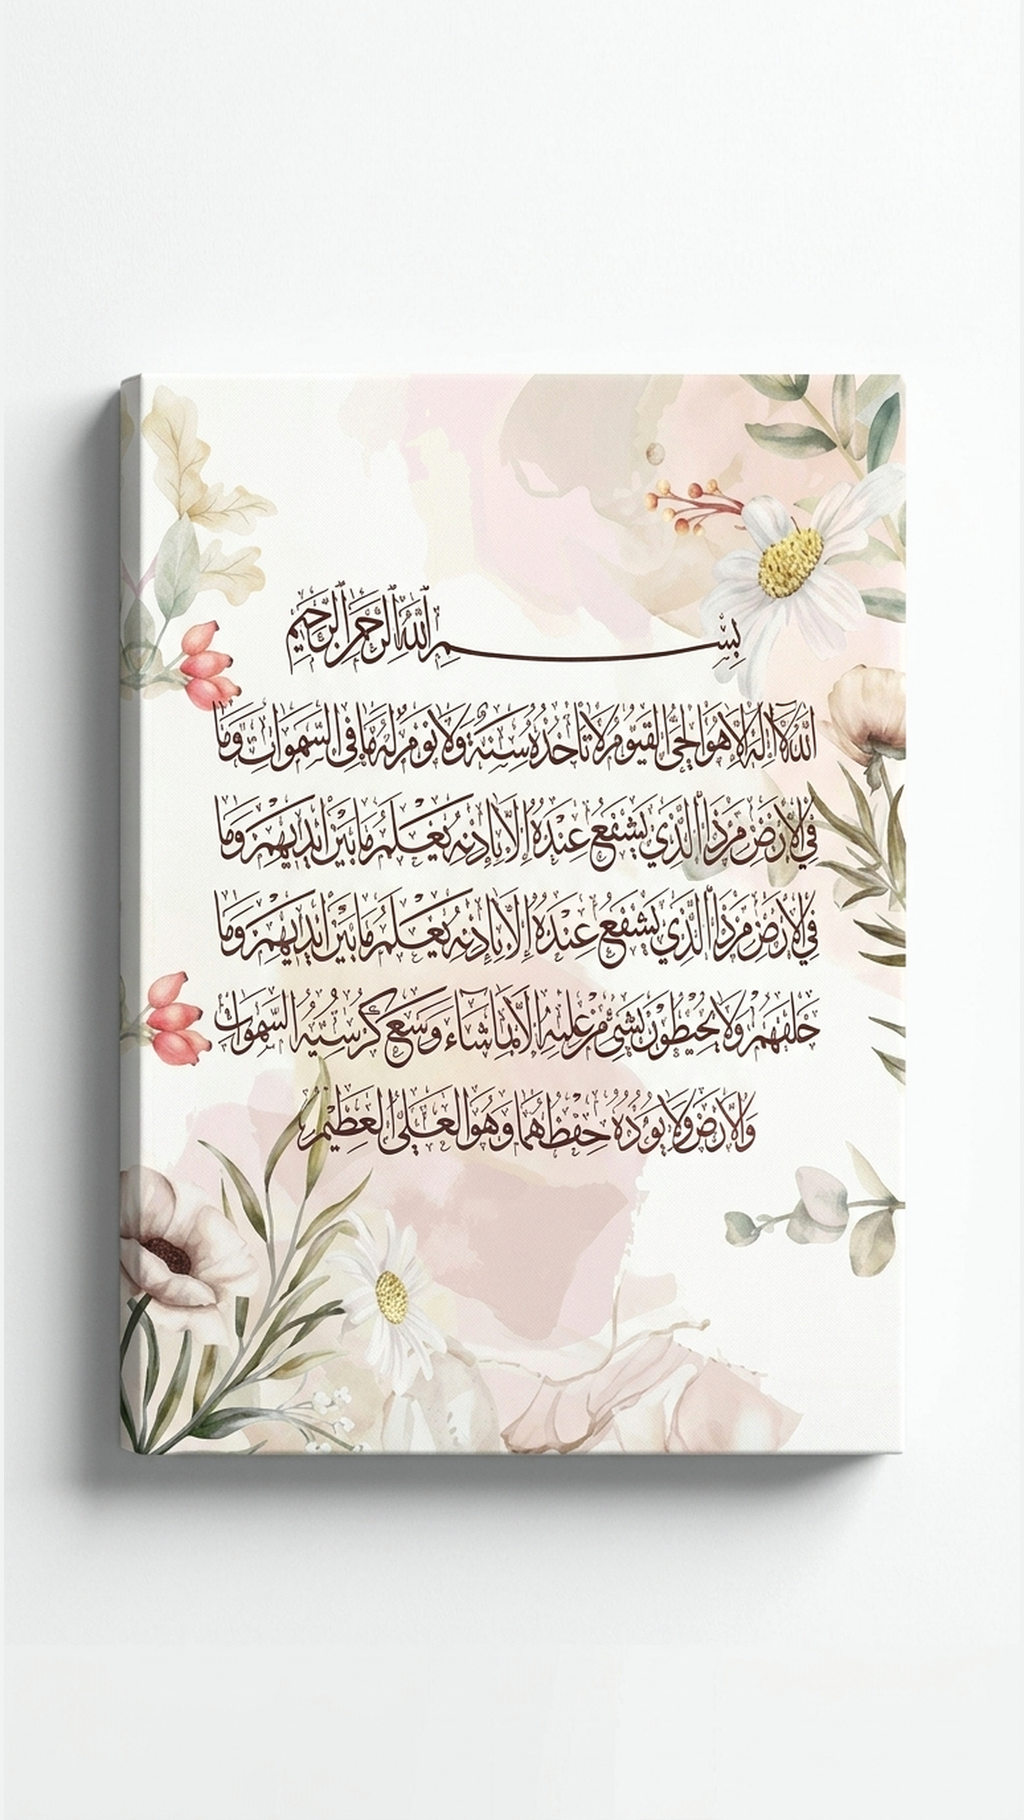 بسم الله الرحمن الرحيم
الله لا اله الا هو الحي القيوم لا تأخذه سنة ولا نوم له ما في السموات وما
في الارض من ذا الذي يشفع عنده الا باذنه يعلم ما بين ايديهم وما
في الارض من ذا الذي يشفع عنده الا باذنه يعلم ما بين ايديهم وما
خلفهم ولا يحيطون بشئ من علمه الا بما شاء وسع كرسيه السموات
والارض ولا يؤده حفظهما وهو العلي العظيم